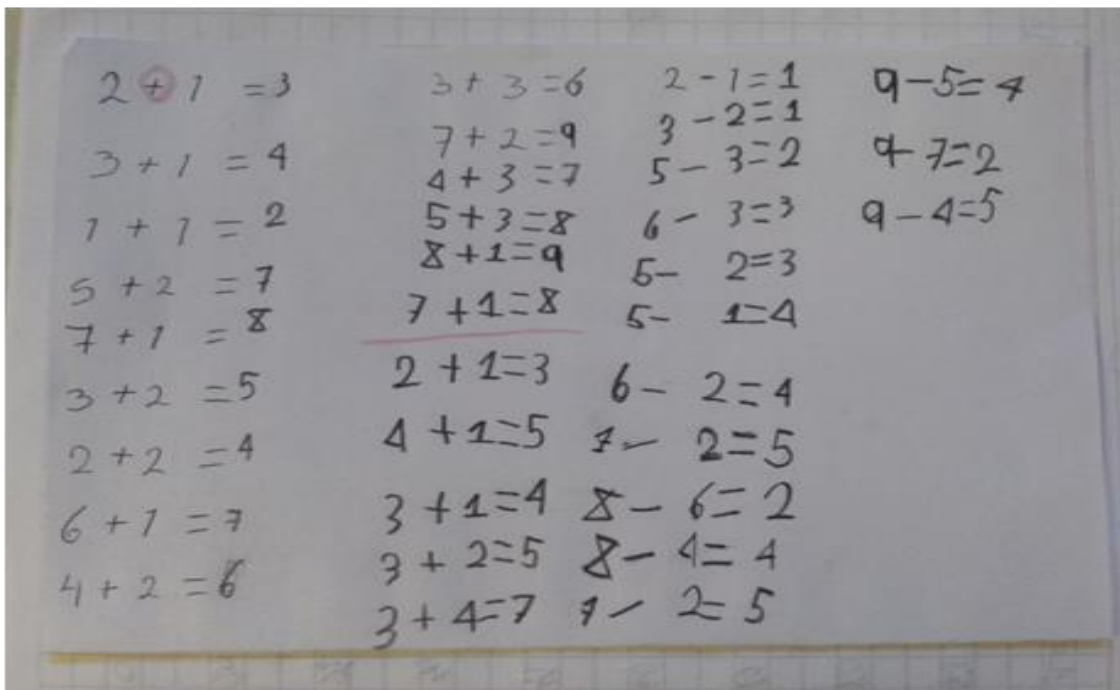 2 + 1 = 3
3 + 1 = 4
1 + 1 = 2
5 + 2 = 7
7 + 1 = 8
3 + 2 = 5
2 + 2 = 4
6 + 1 = 7
4 + 2 = 6
3 + 3 = 6
7 + 2 = 9
4 + 3 = 7
5 + 3 = 8
8 + 1 = 9
7 + 1 = 8
2 + 1 = 3
4 + 1 = 5
3 + 1 = 4
3 + 2 = 5
3 + 4 = 7
2 - 1 = 1
3 - 2 = 1
5 - 3 = 2
6 - 3 = 3
5 - 2 = 3
5 - 1 = 4
6 - 2 = 4
7 - 2 = 5
8 - 6 = 2
8 - 4 = 4
7 - 2 = 5
9 - 5 = 4
9 - 7 = 2
9 - 4 = 5